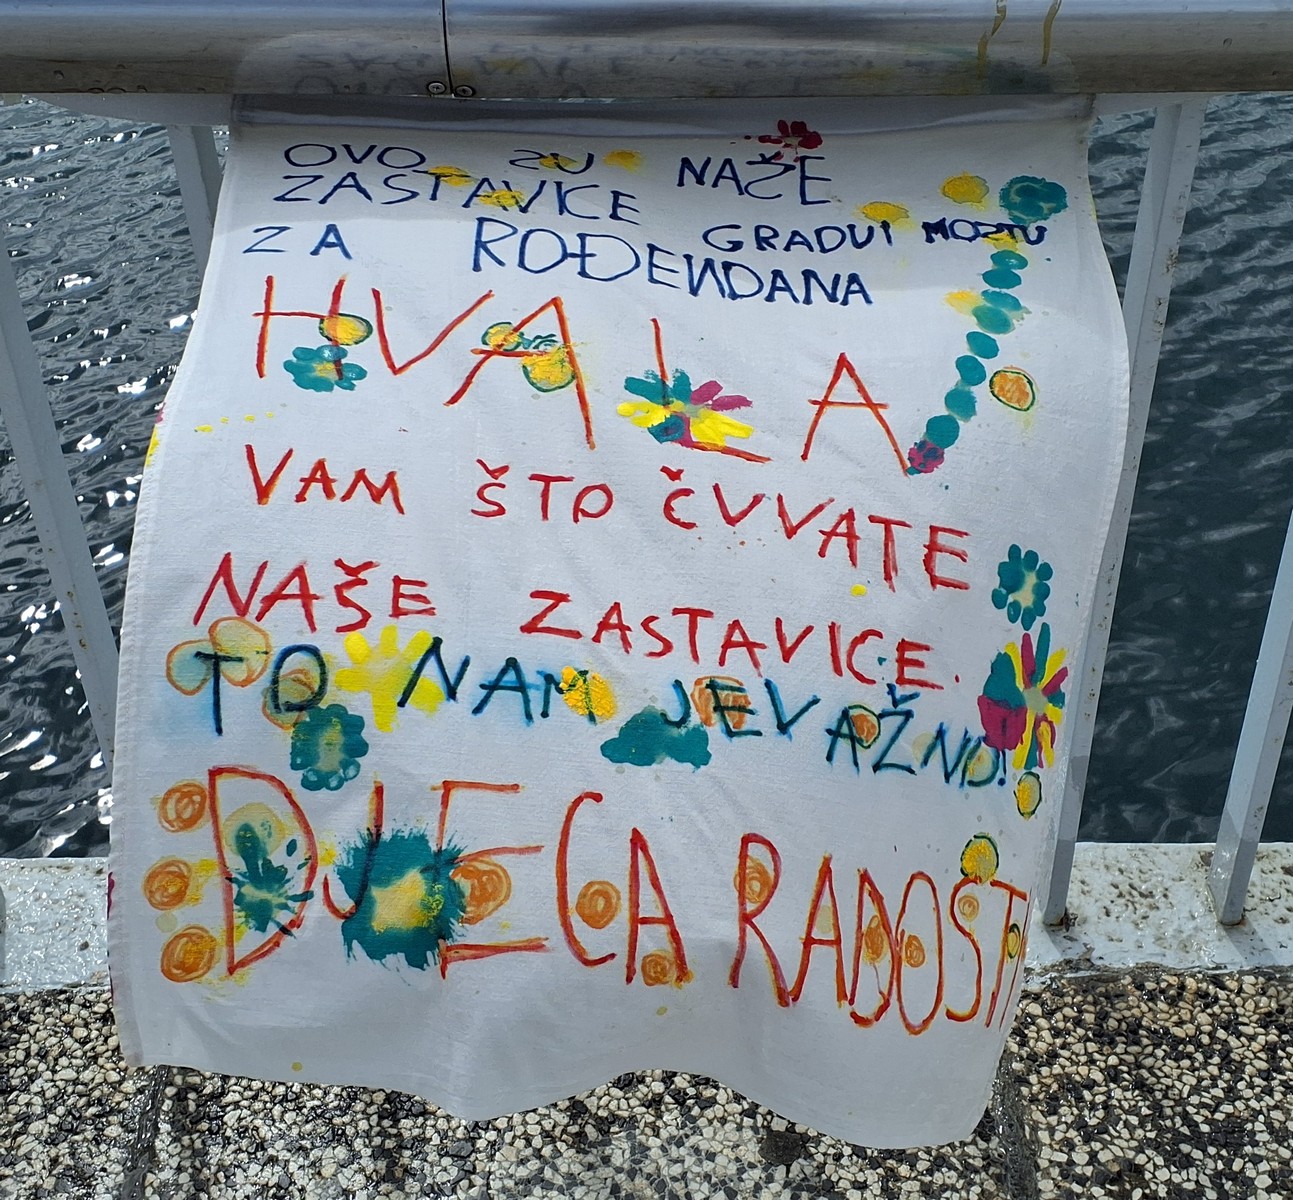 OVO SU NAŠE
ZASTAVICE GRADU I MOSTU
ZA ROĐENDANA
HVALA
VAM ŠTO ČUVATE
NAŠE ZASTAVICE.
TO NAM JE VAŽNO!
DJECA RADOSTI